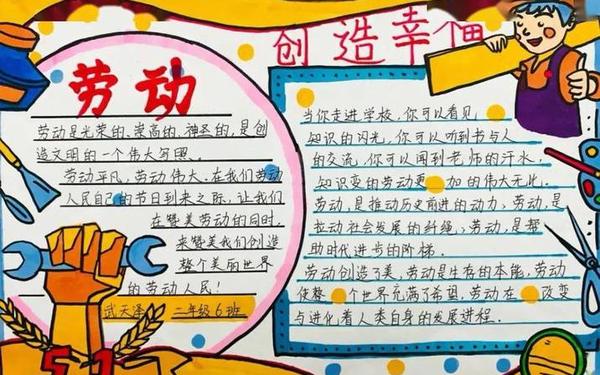 劳动
创造幸
劳动是光荣的、崇高的、神圣的，是创
造文明的一个伟大写照、
劳动平凡，劳动伟大。在我们劳动
人民自己的节日到来之际，让我们
在赞美劳动的同时，
来赞美我们创造
整个美丽世界
的劳动人民！
武天泽 二年级6班
51
当你走进学校，你可以看见
知识的闪光，你可以听到书与人
的交流，你可以闻到老师的汗水，
知识变的劳动更 加的伟大无比。
劳动，是推动历史前进的动力，劳动，是
拉动社会发展的纤绳，劳动，是帮
助时代进步的阶梯。
劳动创造了美，劳动是生存的本能，劳动
使整 个世界充满了希望，劳动在 改变
与进化着人类自身的发展进程.